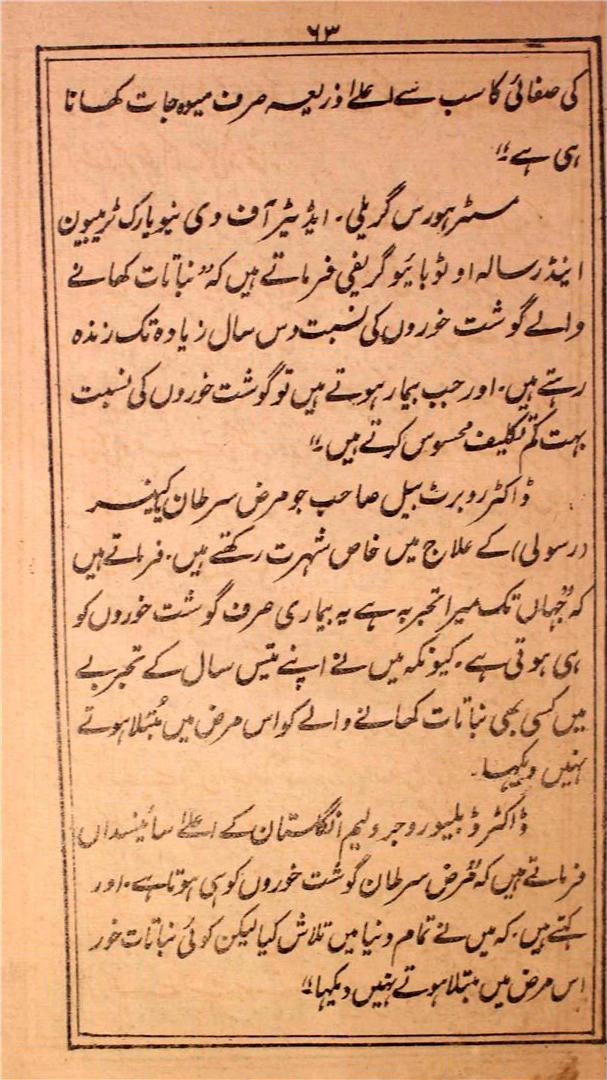 ۶۳
کی صفائی کا سب سے اعلےٰ ذریعہ صرف میوہ جات کھانا
ہی ہے"
مسٹر ہورس گریلی۔ ایڈیٹر آف دی نیو یارک ٹریبیون
اینڈ رسالہ اوٹوبائیوگریفی فرماتے ہیں کہ "نباتات کھانے
والے گوشت خوروں کی نسبت دس سال زیادہ تک زندہ
رہتے ہیں۔ اور جب بیمار ہوتے ہیں تو گوشت خوروں کی نسبت
بہت کم تکلیف محسوس کرتے ہیں۔"
ڈاکٹر روبرٹ بیل صاحب جو مرض سرطان یا کینسر
(رسولی) کے علاج میں خاص شہرت رکھتے ہیں۔ فرماتے ہیں
کہ "جہاں تک میرا تجربہ ہے یہ بیماری صرف گوشت خوروں کو
ہی ہوتی ہے۔ کیونکہ میں نے اپنے تیس سال کے تجربے
میں کسی بھی نباتات کھانے والے کو اس مرض میں مُبتلا ہوتے
نہیں دیکھا۔
ڈاکٹر ڈبلیو روجر ولیم انگلستان کے اعلےٰ سائینسداں
فرماتے ہیں کہ "مرض سرطان گوشت خوروں کو ہی ہوتا ہے۔ اور
کہتے ہیں۔ کہ میں نے تمام دنیا میں تلاش کیا لیکن کوئی نباتات خور
اس مرض میں مبتلا ہوتے نہیں دیکھا"